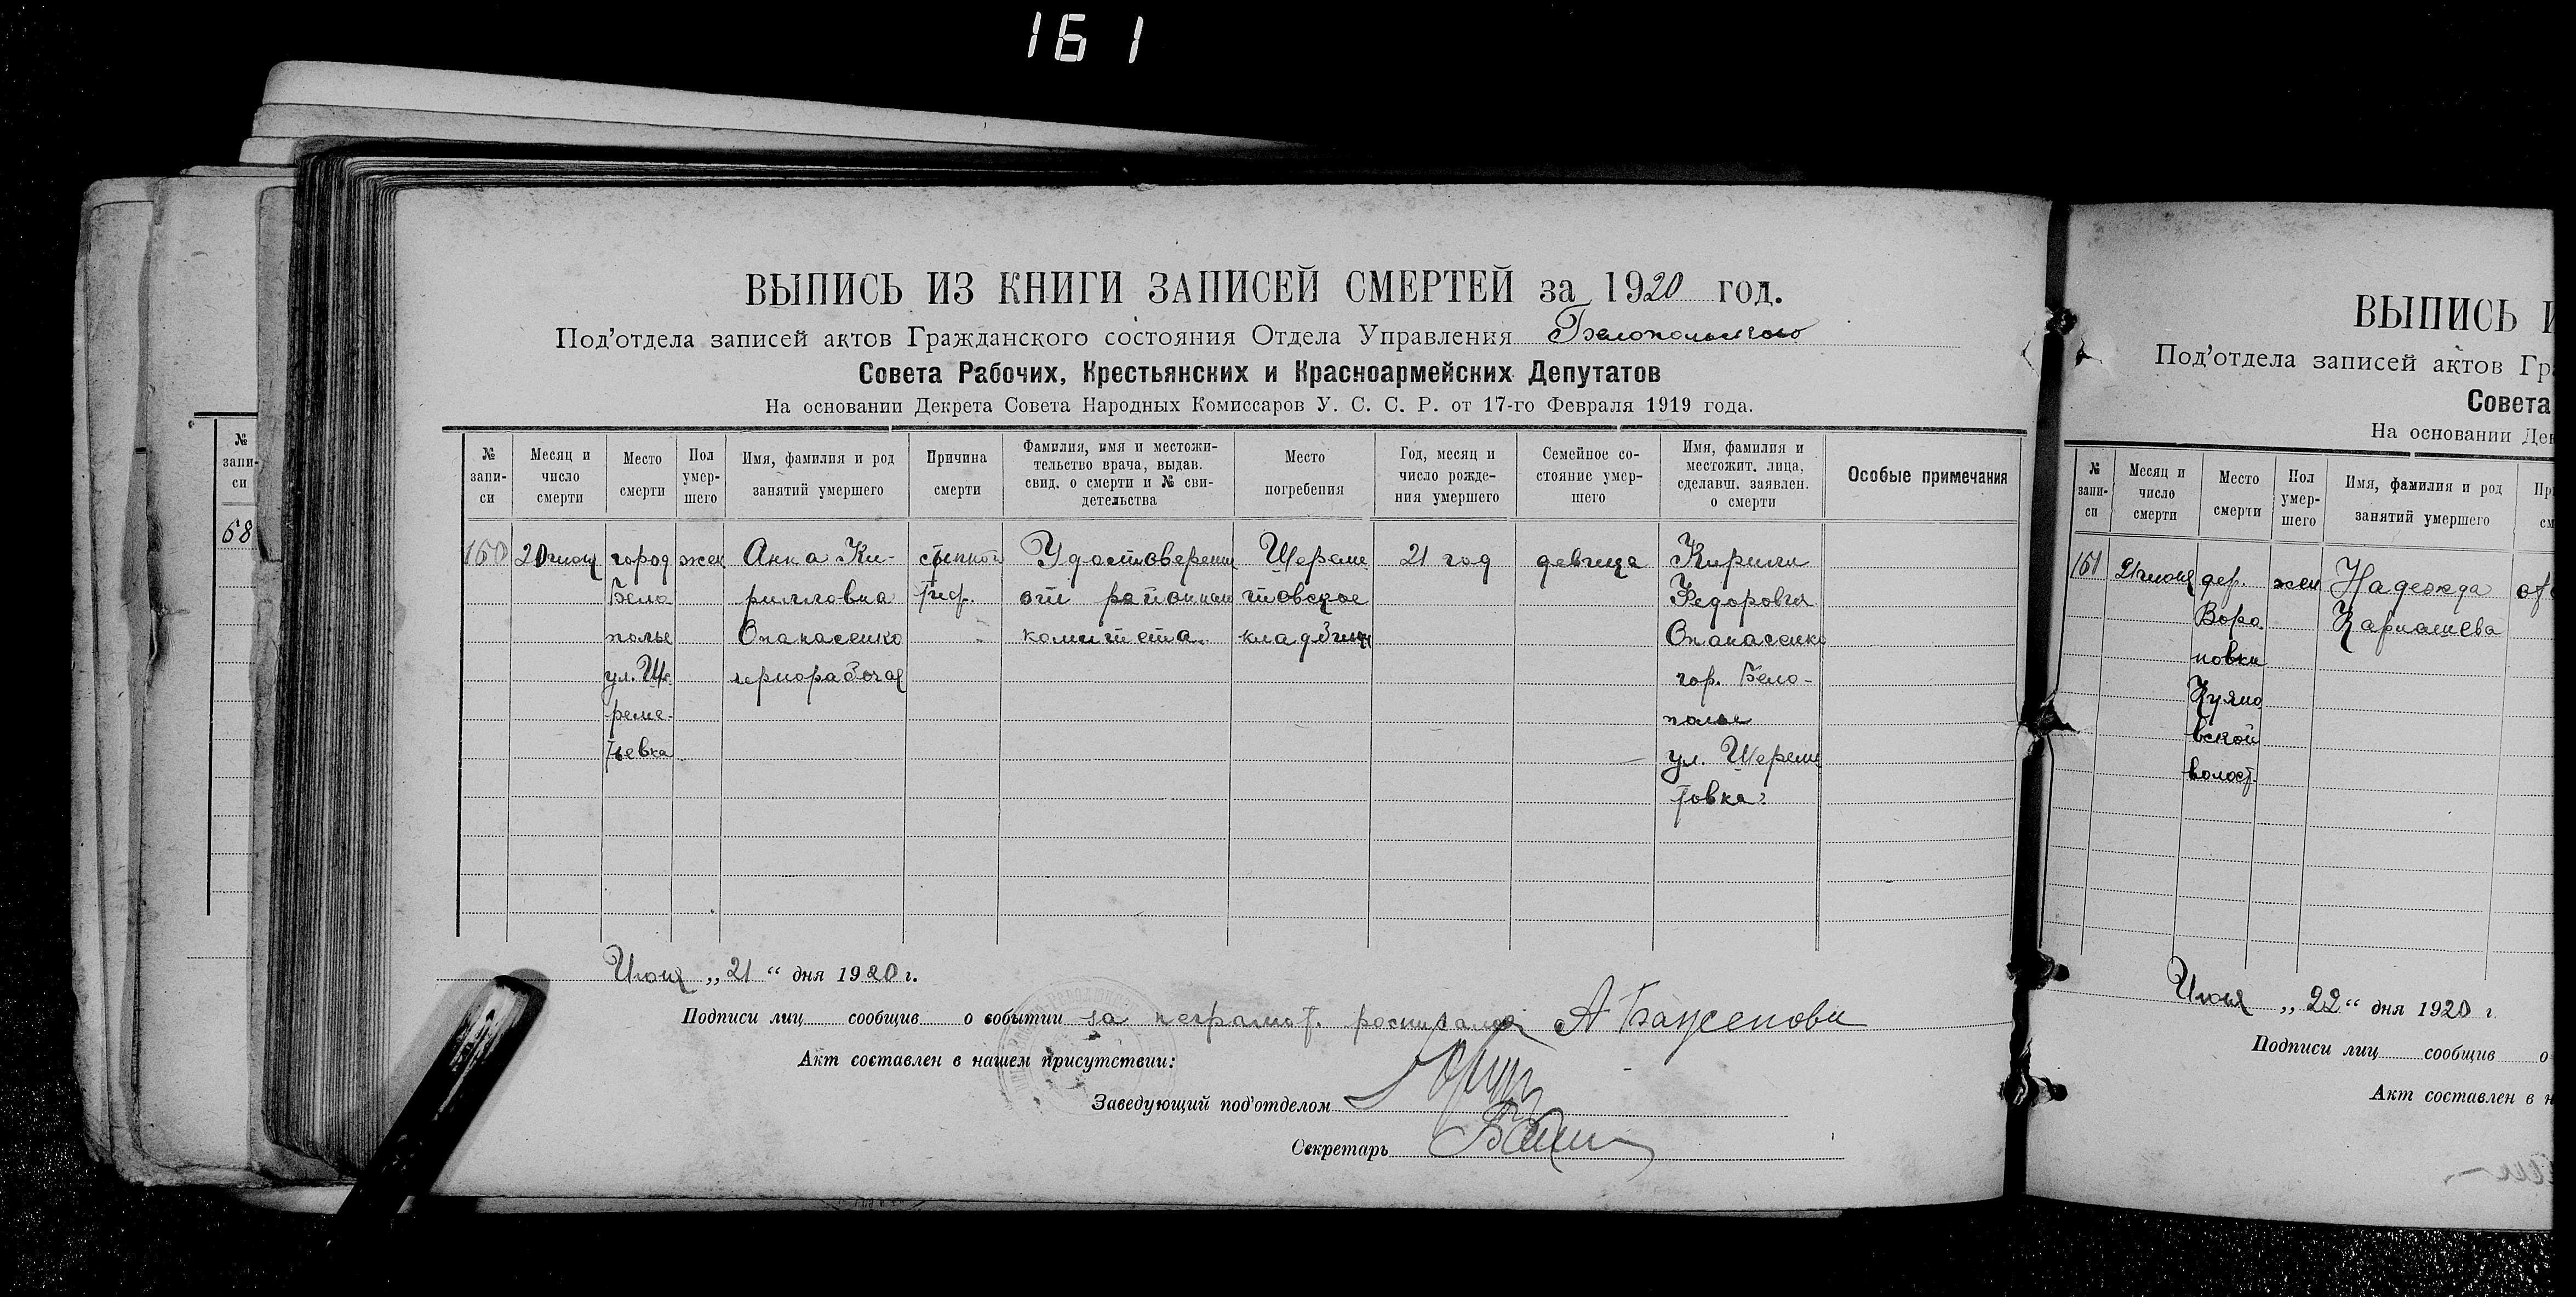 161
ВЫПИСЬ ИЗ КНИГИ ЗАПИСЕЙ СМЕРТЕЙ за 1920 год.
Под'отдела записей актов Гражданского состояния Отдела Управления Белопольского
Совета Рабочих, Крестьянских и Красноармейских Депутатов
На основании Декрета Совета Народных Комиссаров У. С. С. Р. от 17-го Февраля 1919 года.
№ запи-си
Месяц и число смерти
Место смерти
Пол умер-шего
Имя, фамилия и род занятий умершего
Причина смерти
Фамилия, имя и местожи-тельство врача, выдав. свид. о смерти и № сви-детельства
Место погребения
Год, месяц и число рожде-ния умершего
Семейное со-стояние умер-шего
Имя, фамилия и местожит. лица, сделавш. заявлен. о смерти
Особые примечания
160
20 июня
город
Бело
полье
ул. Ше
реме-
тьевка
жен
Анна Ки-
рилловна
Опанасенко
чернорабочая
сыпной
тиф.
Удостоверении
от районнаго
комитета
Шереме
товское
кладбище
21 год
девица
Кирилл
Федоровия
Опанасенко
гор. Бело-
полье
ул. Шереме
товка
Июня „21“ дня 1920 г.
Подписи лиц сообщив о событии за неграмот. росписался А Баженова
Акт составлен в нашем присутствии:
Заведующий под'отделом
Секретарь
№
запи-
си
68
ВЫПИСЬ И
Под'отдела записей актов Гр
Совета
На основании Дек
№ запи-си
Месяц и число смерти
Место смерти
Пол умер-шего
Имя, фамилия и род занятий умершего
161
21 июня
дер.
Воро
новки
Куяно
вской
волост.
жен
Надежда
Карпашева
Июня „22“ дня 1920 г
Подписи лиц сообщив о
Акт составлен в н